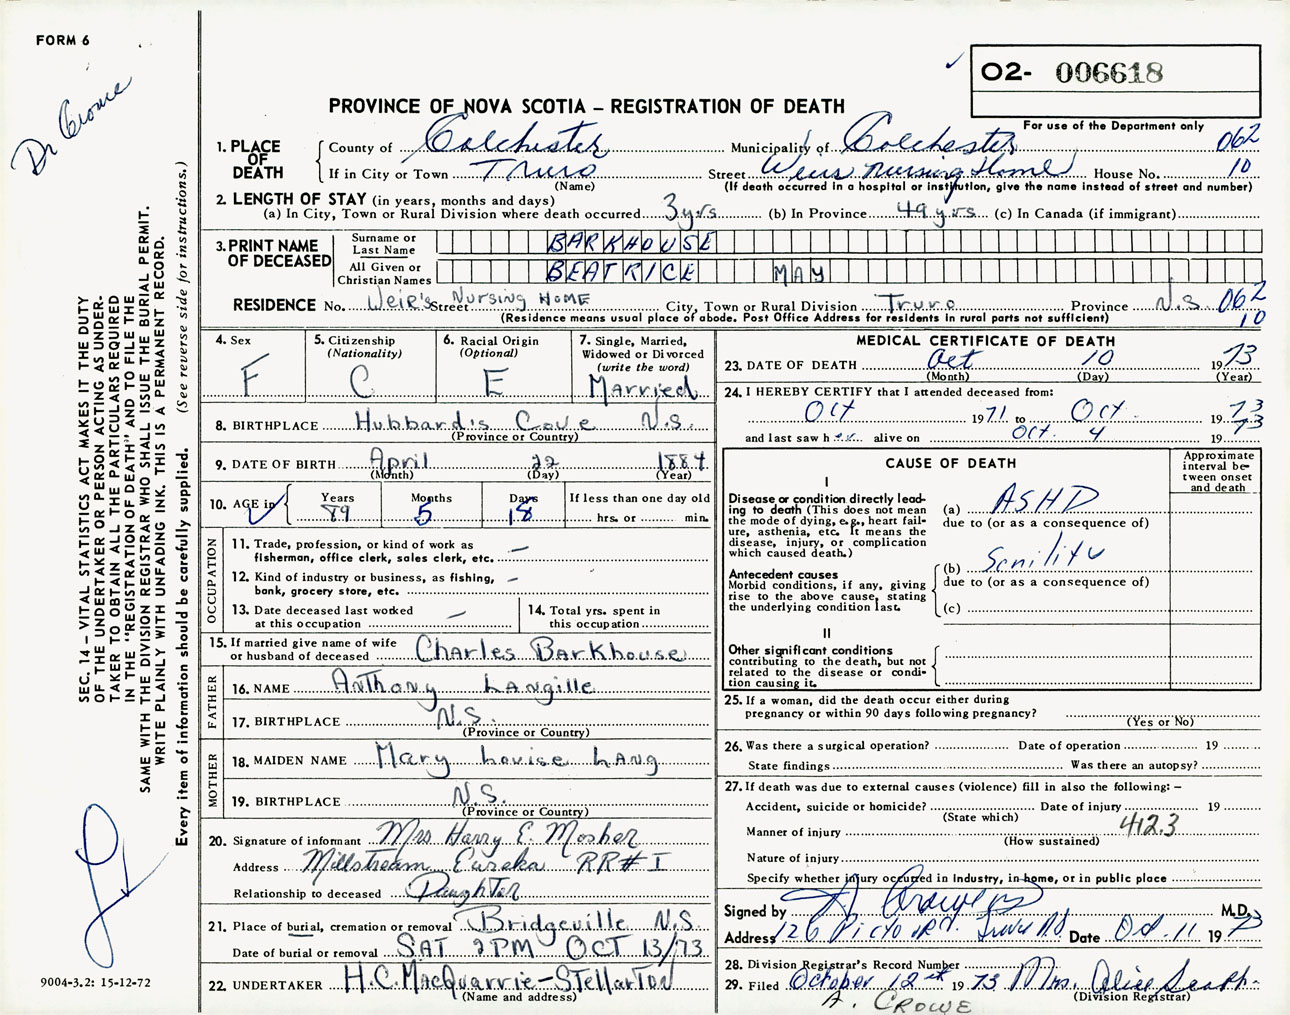 FORM 6
Dr Crowe
O2- 006618
For use of the Department only
PROVINCE OF NOVA SCOTIA – REGISTRATION OF DEATH
1. PLACE OF DEATH
County of Colchester Municipality of Colchester 062
If in City or Town Truro Street Weirs Nursing Home House No. 10
(Name) (If death occurred in a hospital or institution, give the name instead of street and number)
2. LENGTH OF STAY (in years, months and days)
(a) In City, Town or Rural Division where death occurred 3 yrs (b) In Province 49 yrs (c) In Canada (if immigrant)
3. PRINT NAME OF DECEASED
Surname or Last Name BARKHOUSE
All Given or Christian Names BEATRICE MAY
RESIDENCE No. Weir's Street Nursing HOME City, Town or Rural Division Truro Province N.S. 062
(Residence means usual place of abode. Post Office Address for residents in rural parts not sufficient) 10
4. Sex F
5. Citizenship (Nationality) C
6. Racial Origin (Optional) E
7. Single, Married, Widowed or Divorced (write the word) Married
8. BIRTHPLACE Hubbard's Cove N.S.
(Province or Country)
9. DATE OF BIRTH April 22 1884
(Month) (Day) (Year)
10. AGE in Years 89 Months 5 Days 18 If less than one day old hrs. or min.
OCCUPATION
11. Trade, profession, or kind of work as fisherman, office clerk, sales clerk, etc. —
12. Kind of industry or business, as fishing, bank, grocery store, etc. —
13. Date deceased last worked at this occupation —
14. Total yrs. spent in this occupation
15. If married give name of wife or husband of deceased Charles Barkhouse
FATHER
16. NAME Anthony Langille
17. BIRTHPLACE N.S.
(Province or Country)
MOTHER
18. MAIDEN NAME Mary Louise Lang
19. BIRTHPLACE N.S.
(Province or Country)
20. Signature of informant Mrs Harry E. Mosher
Address Millstream Eureka RR# 1
Relationship to deceased Daughter
21. Place of burial, cremation or removal Bridgeville N.S.
Date of burial or removal SAT 2PM OCT 13/73
22. UNDERTAKER H.C. MacQuarrie – Stellarton
(Name and address)
MEDICAL CERTIFICATE OF DEATH
23. DATE OF DEATH Oct 10 1973
(Month) (Day) (Year)
24. I HEREBY CERTIFY that I attended deceased from:
Oct 1971 to Oct. 1973
and last saw her alive on Oct. 4 1973
CAUSE OF DEATH
Approximate interval between onset and death
I
Disease or condition directly leading to death (This does not mean the mode of dying, e.g., heart failure, asthenia, etc. It means the disease, injury, or complication which caused death.)
(a) ASHD
due to (or as a consequence of)
Antecedent causes
Morbid conditions, if any, giving rise to the above cause, stating the underlying condition last.
(b) Senility
due to (or as a consequence of)
(c)
II
Other significant conditions
contributing to the death, but not related to the disease or condition causing it.
25. If a woman, did the death occur either during pregnancy or within 90 days following pregnancy?
(Yes or No)
26. Was there a surgical operation? Date of operation 19
State findings Was there an autopsy?
27. If death was due to external causes (violence) fill in also the following: –
Accident, suicide or homicide? Date of injury 19
(State which)
Manner of injury 4123
(How sustained)
Nature of injury
Specify whether injury occurred in industry, in home, or in public place
Signed by M.D.
Address 126 Pictou Rd. Truro N.S. Date Oct. 11 1973
28. Division Registrar's Record Number
29. Filed October 12 1973 Mrs. Alice
(Division Registrar)
A. CROWE
SEC. 14 – VITAL STATISTICS ACT MAKES IT THE DUTY
OF THE UNDERTAKER OR PERSON ACTING AS UNDER-
TAKER TO OBTAIN ALL THE PARTICULARS REQUIRED
IN THE "REGISTRATION OF DEATH" AND TO FILE THE
SAME WITH THE DIVISION REGISTRAR WHO SHALL ISSUE THE BURIAL PERMIT.
WRITE PLAINLY WITH UNFADING INK. THIS IS A PERMANENT RECORD.
Every item of information should be carefully supplied. (See reverse side for instructions.)
9004-3.2: 15-12-72